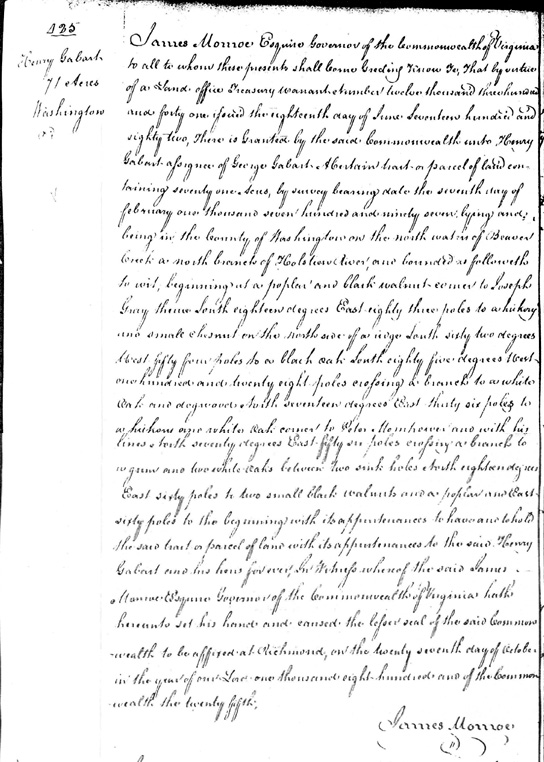 135
Henry Gabart
71 Acres
Washington
James Monroe Esquire Governor of the Commonwealth of Virginia
to all to whom these presents shall Come Greeting Know Ye, That by virtue
of a Land office Treasury warrant Number twelve thousand three hundred
and forty one issued the eighteenth day of June Seventeen hundred and
eighty two, There is Granted by the said Commonwealth unto Henry
Gabart assignee of George Gabart A certain tract or parcel of land con-
taining seventy one Acres, by survey bearing date the seventh day of
february one thousand seven hundred and ninety seven, lying and
being in the County of Washington on the north waters of Beaver
Creek a north branch of Holstein River, and bounded as followeth
to wit, beginning at a poplar and black walnut corner to Joseph
Gray thence South eighteen degrees East eighty three poles to a hickory
and small Chesnut on the north side of a ridge South sixty two degrees
West fifty four poles to a black oak South eighty five degrees West
one hundred and twenty eight poles crossing a branch to a white
Oak and dogwood North seventeen degrees East thirty six poles to
a hickory and white Oak corner to Peter and with his
lines North seventy degrees East fifty six poles crossing a branch to
a gum and two white Oaks between two sink holes North eighteen degrees
East sixty poles to two small black walnuts and a poplar and East
sixty poles to the beginning with its appurtenances to have and to hold
the said tract or parcel of land with its appurtenances to the said Henry
Gabart and his heirs forever, In Witness whereof the said James
Monroe Esquire Governor of the Commonwealth of Virginia hath
hereunto set his hand and caused the lesser seal of the said Common
wealth to be affixed at Richmond, on the twenty seventh day of October
in the year of our Lord one thousand eight hundred and of the Common
wealth the twenty fifth.
James Monroe